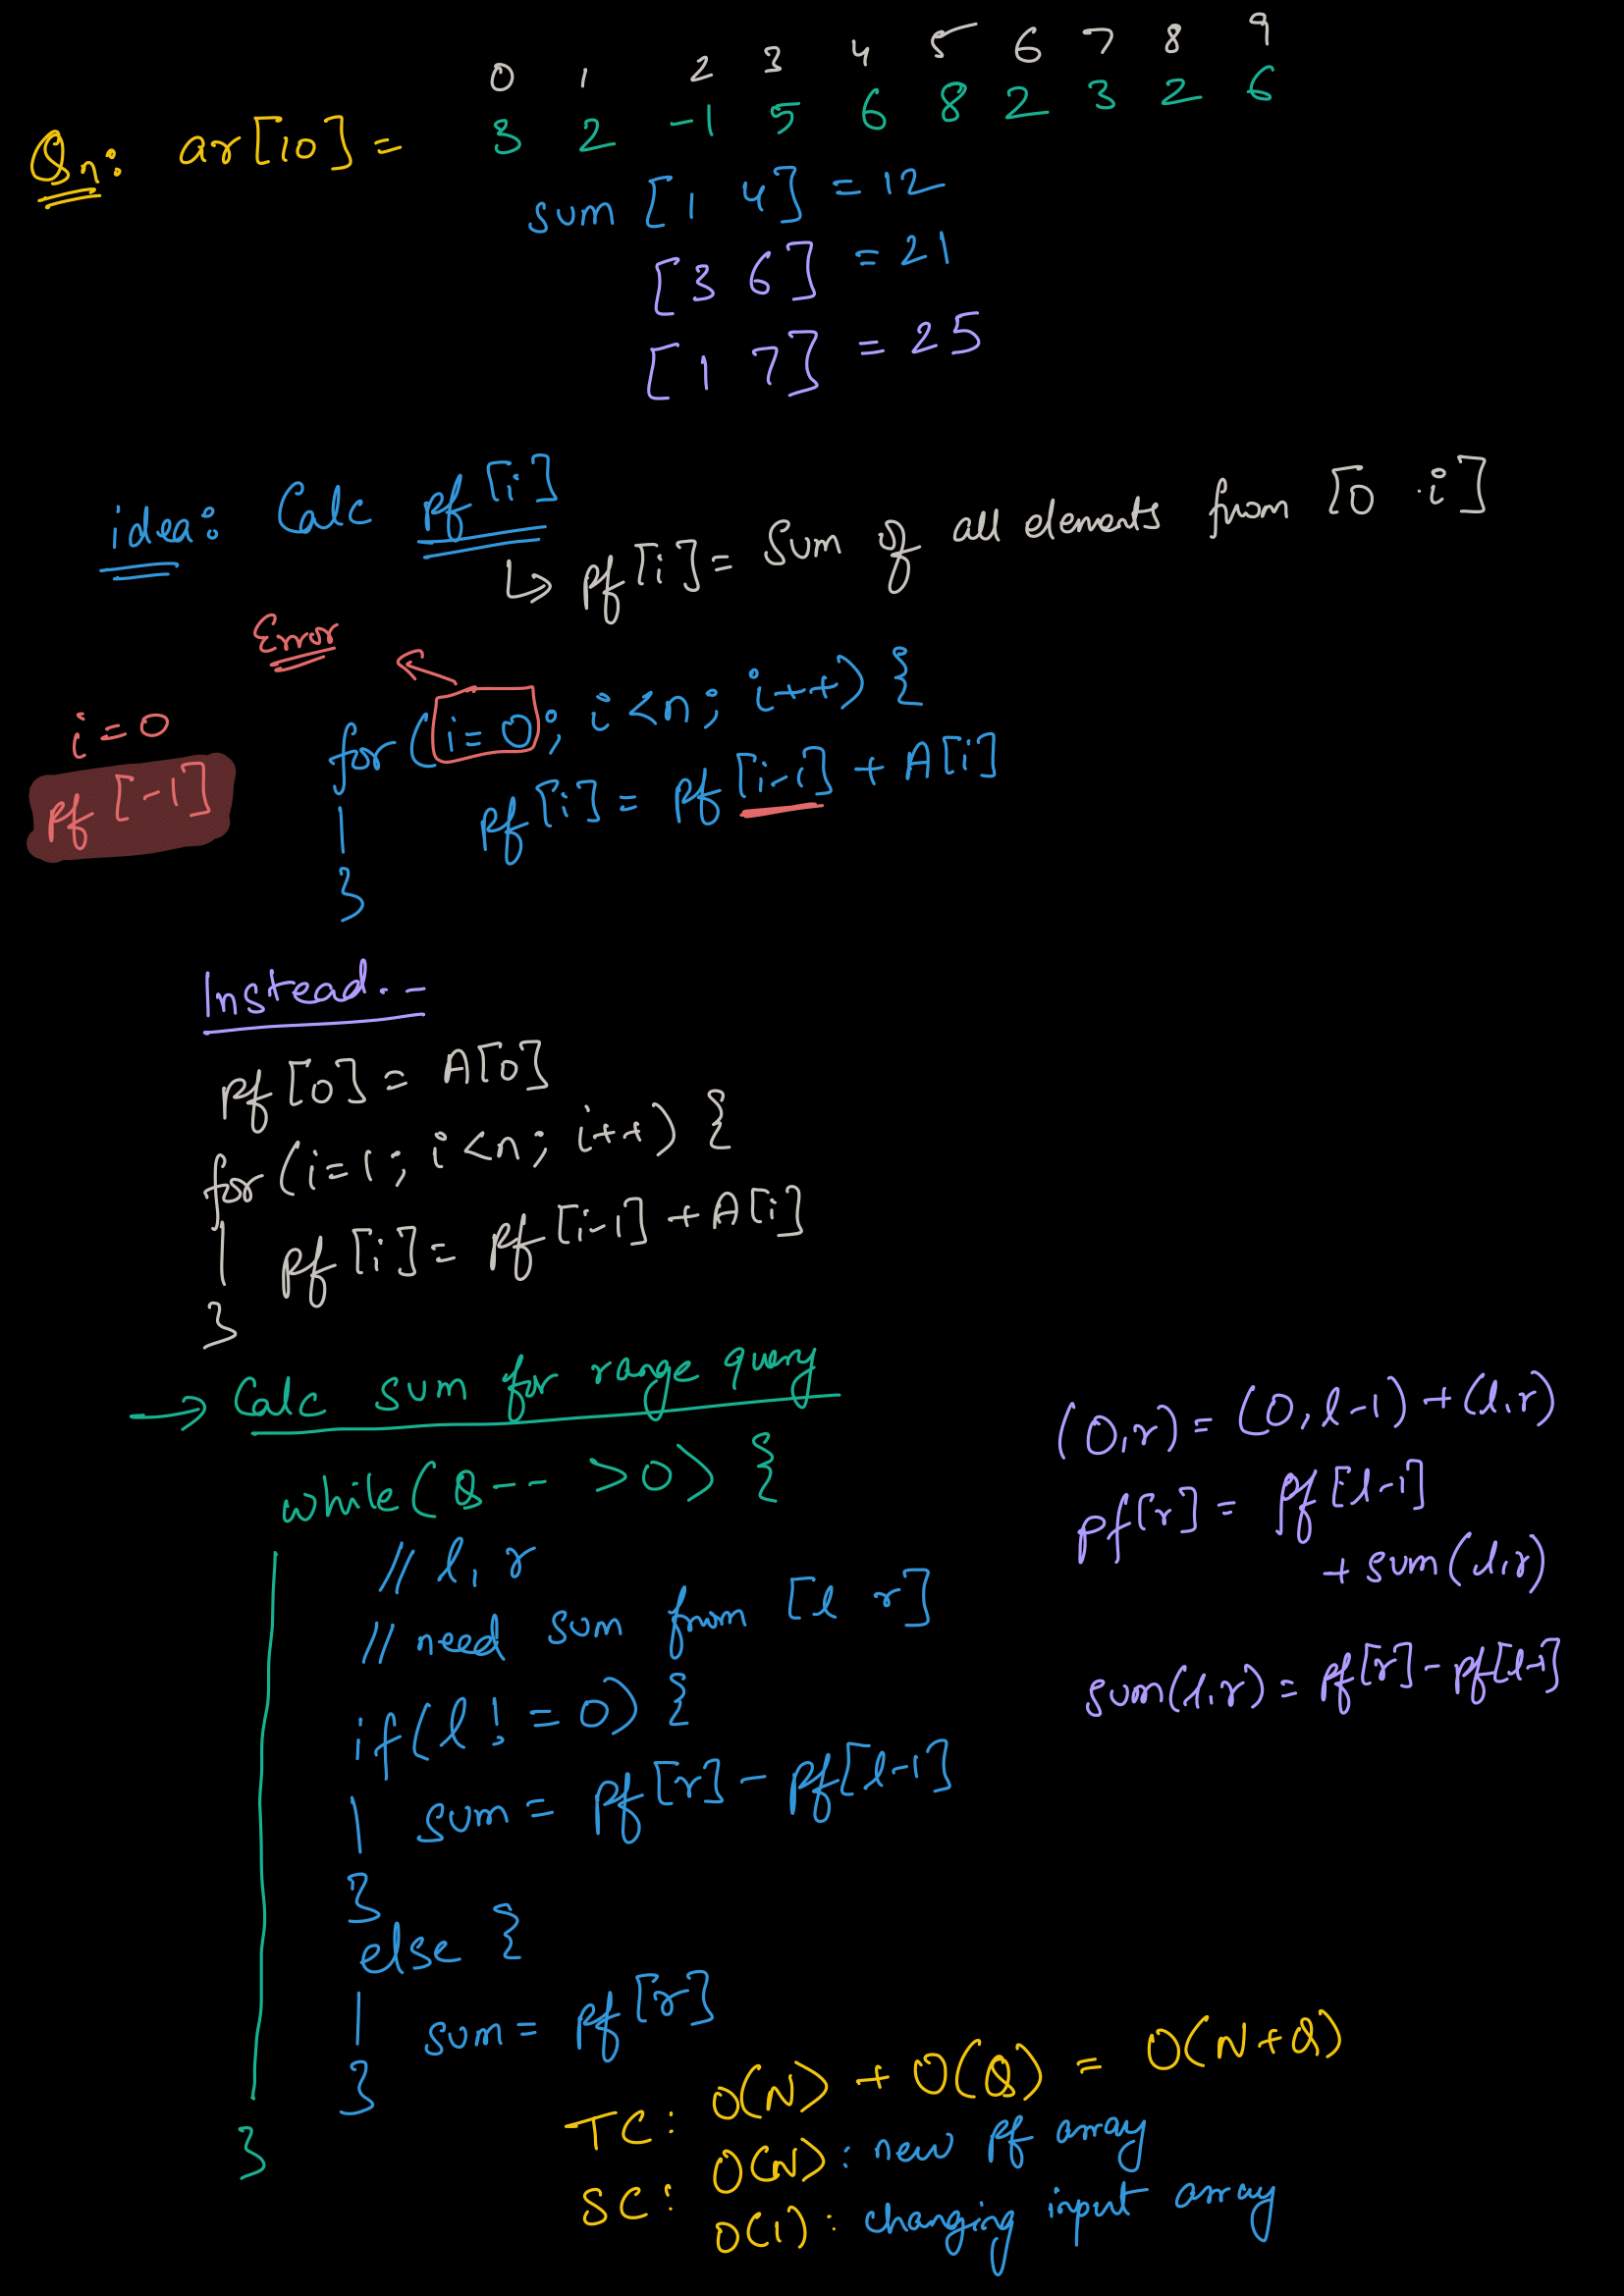 0 1 2 3 4 5 6 7 8 9
Qn: ar[10] = 3 2 -1 5 6 8 2 3 2 6
sum [1 4] = 12
[3 6] = 21
[1 7] = 25
idea: Calc pf[i]
↳ pf[i] = Sum of all elements from [0 i]
Error
i=0
for(i=0; i<n; i++) {
pf[-1]
pf[i] = pf[i-1] + A[i]
}
Instead..-
pf[0] = A[0]
for(i=1; i<n; i++) {
pf[i] = pf[i-1] + A[i]
}
→ Calc sum for range query
while(Q-- >0) {
// l, r
// need sum from [l r]
if(l != 0) {
sum = pf[r] - pf[l-1]
}
else {
sum = pf[r]
}
}
(0,r) = (0, l-1) + (l,r)
pf[r] = pf[l-1]
+ sum(l,r)
sum(l,r) = pf[r] - pf[l-1]
TC: O(N) + O(Q) = O(N+Q)
SC: O(N): new pf array
O(1): changing input array